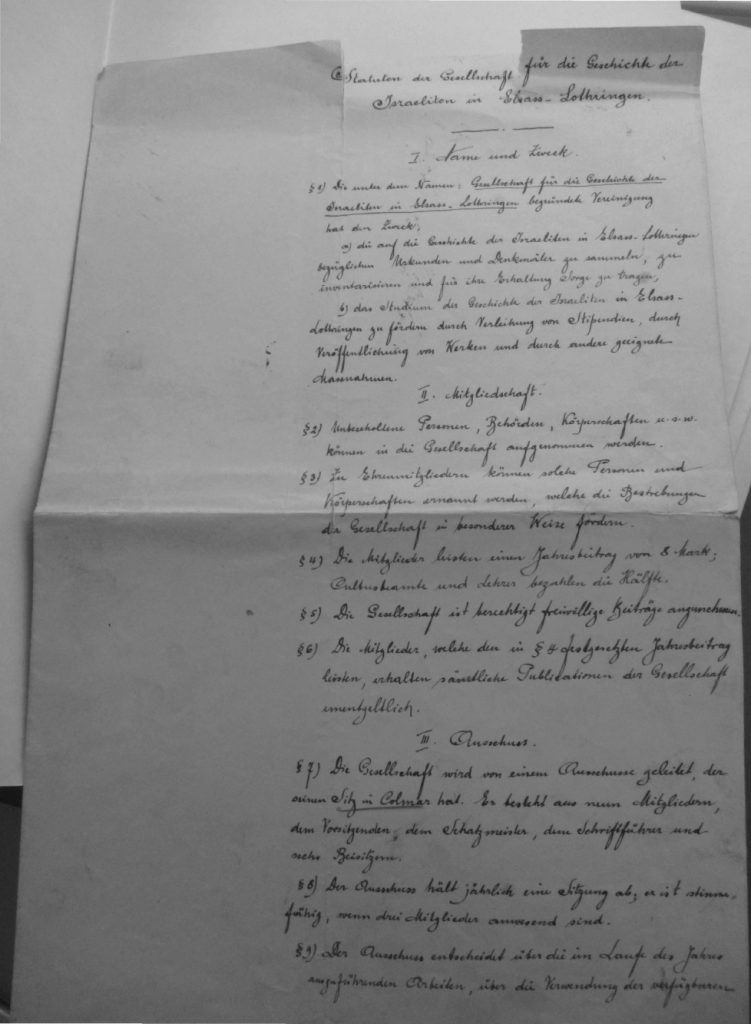 Statuten der Gesellschaft für die Geschichte der
Israeliten in Elsass-Lothringen.
I. Name und Zweck.
§ 1) Die unter dem Namen: Gesellschaft für die Geschichte der
Israeliten in Elsass-Lothringen begründete Vereinigung
hat den Zweck,
a) die auf die Geschichte der Israeliten in Elsass-Lothringen
bezüglichen Urkunden und Denkmäler zu sammeln, zu
inventarisieren und für ihre Erhaltung Sorge zu tragen,
b) das Studium der Geschichte der Israeliten in Elsass-
Lothringen zu fördern durch Verleihung von Stipendien, durch
Veröffentlichung von Werken und durch andere geeignete
Massnahmen.
II. Mitgliedschaft.
§ 2) Unbescholtene Personen, Behörden, Körperschaften u. s. w.
können in die Gesellschaft aufgenommen werden.
§ 3) Zu Ehrenmitgliedern können solche Personen und
Körperschaften ernannt werden, welche die Bestrebungen
der Gesellschaft in besonderer Weise fördern.
§ 4) Die Mitglieder leisten einen Jahresbeitrag von 8 Mark;
Cultusbeamte und Lehrer bezahlen die Hälfte.
§ 5) Die Gesellschaft ist berechtigt freiwillige Beiträge anzunehmen.
§ 6) Die Mitglieder, welche den in § 4 festgesetzten Jahresbeitrag
leisten, erhalten sämtliche Publicationen der Gesellschaft
unentgeltlich.
III. Ausschuss.
§ 7) Die Gesellschaft wird von einem Ausschusse geleitet, der
seinen Sitz in Colmar hat. Er besteht aus neun Mitgliedern,
dem Vorsitzenden, dem Schatzmeister, dem Schriftführer und
sechs Beisitzern.
§ 8) Der Ausschuss hält jährlich eine Sitzung ab; er ist stimm-
fähig, wenn drei Mitglieder anwesend sind.
§ 9) Der Ausschuss entscheidet über die im Laufe des Jahres
auszuführenden Arbeiten, über die Verwendung der verfügbaren